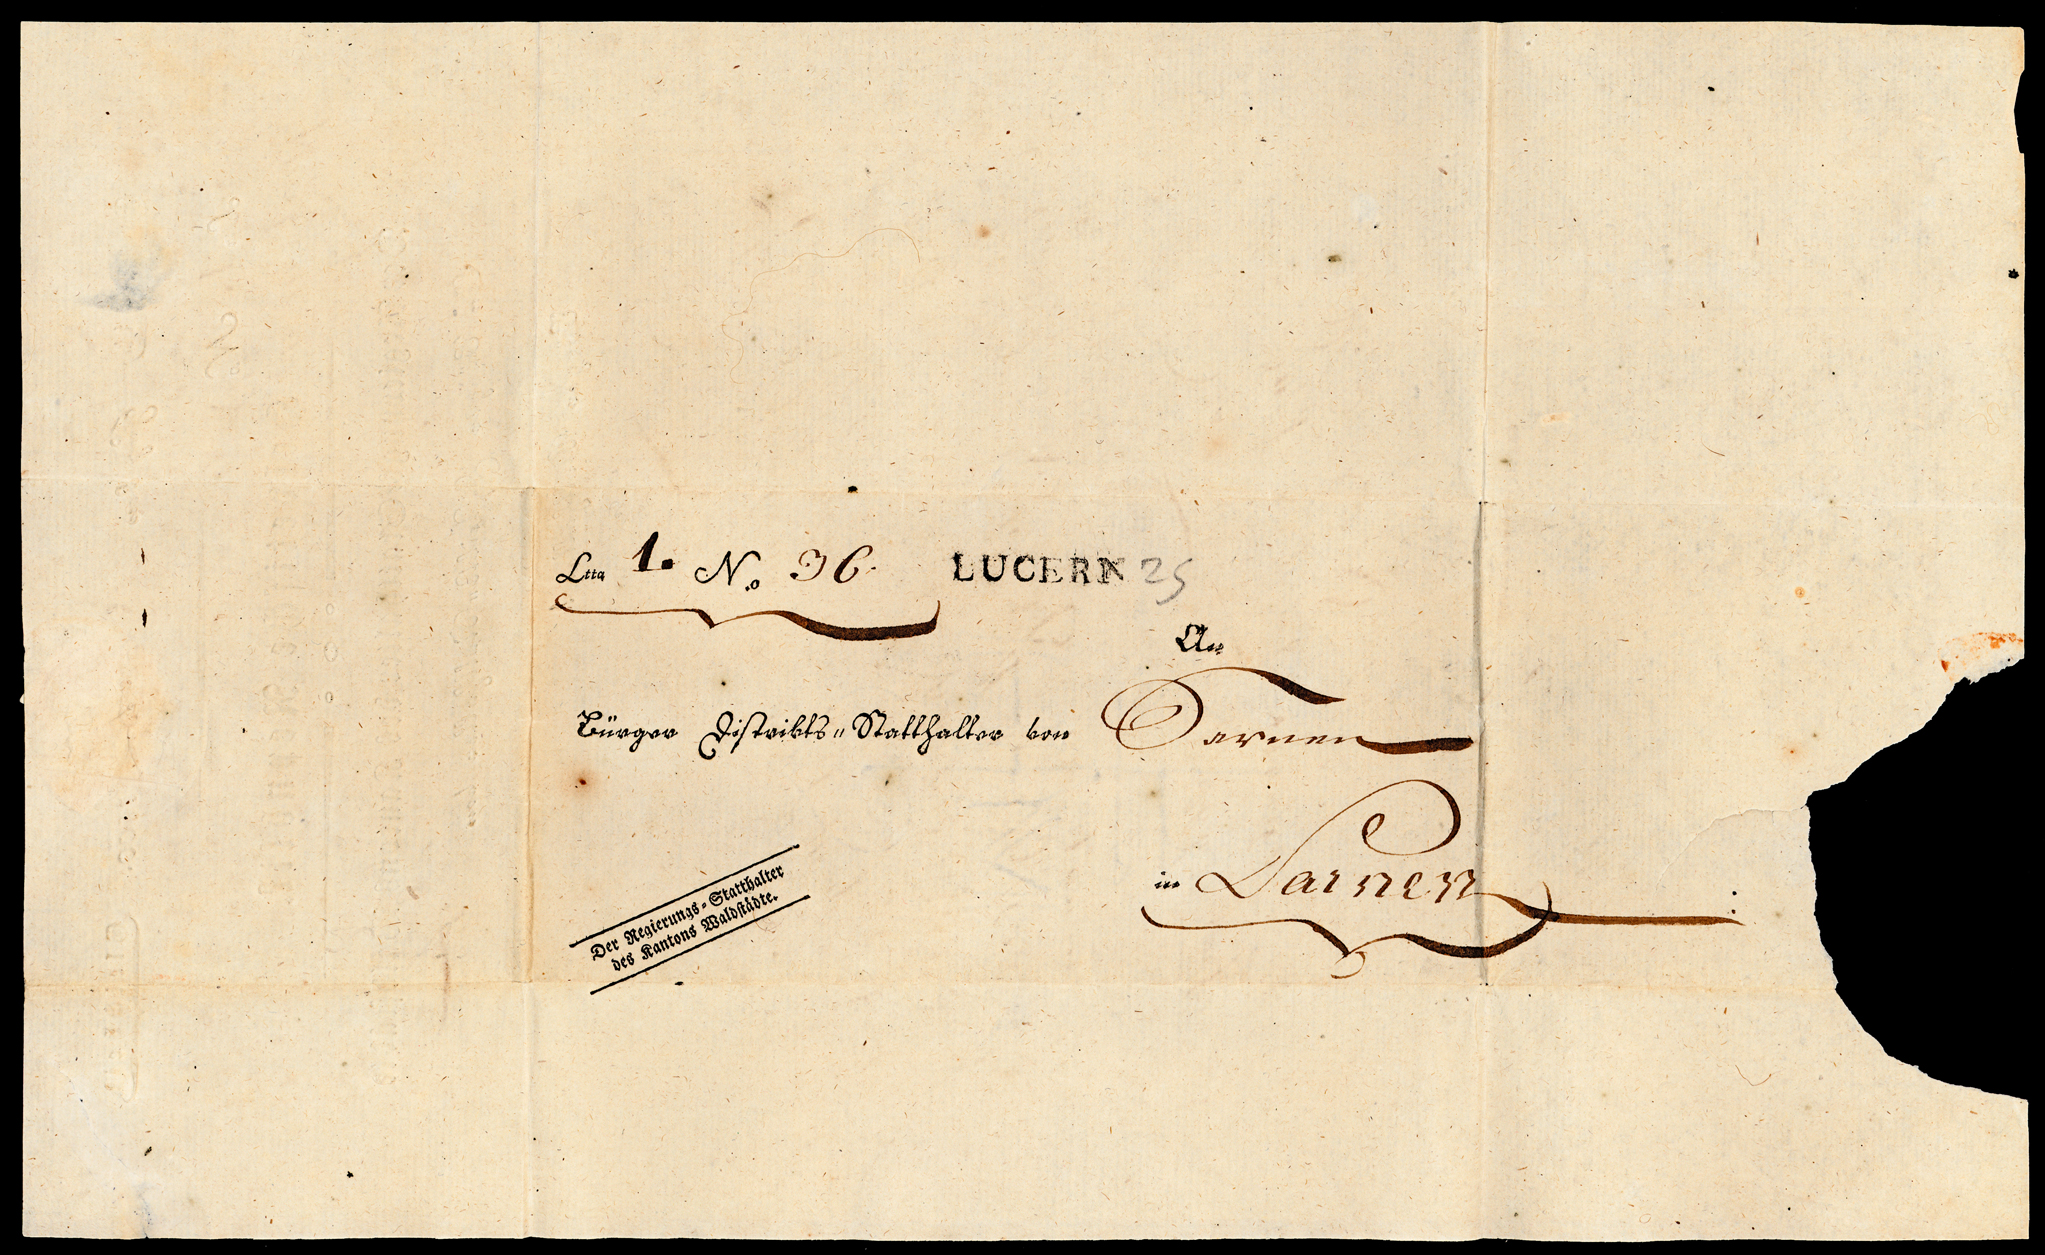 Ltta 1. No. 36. LUCERN 25
An
Bürger Distrikts=Statthalter von Sarnen
in Sarnen
Der Regierungs=Statthalter
des Kantons Waldstädte.